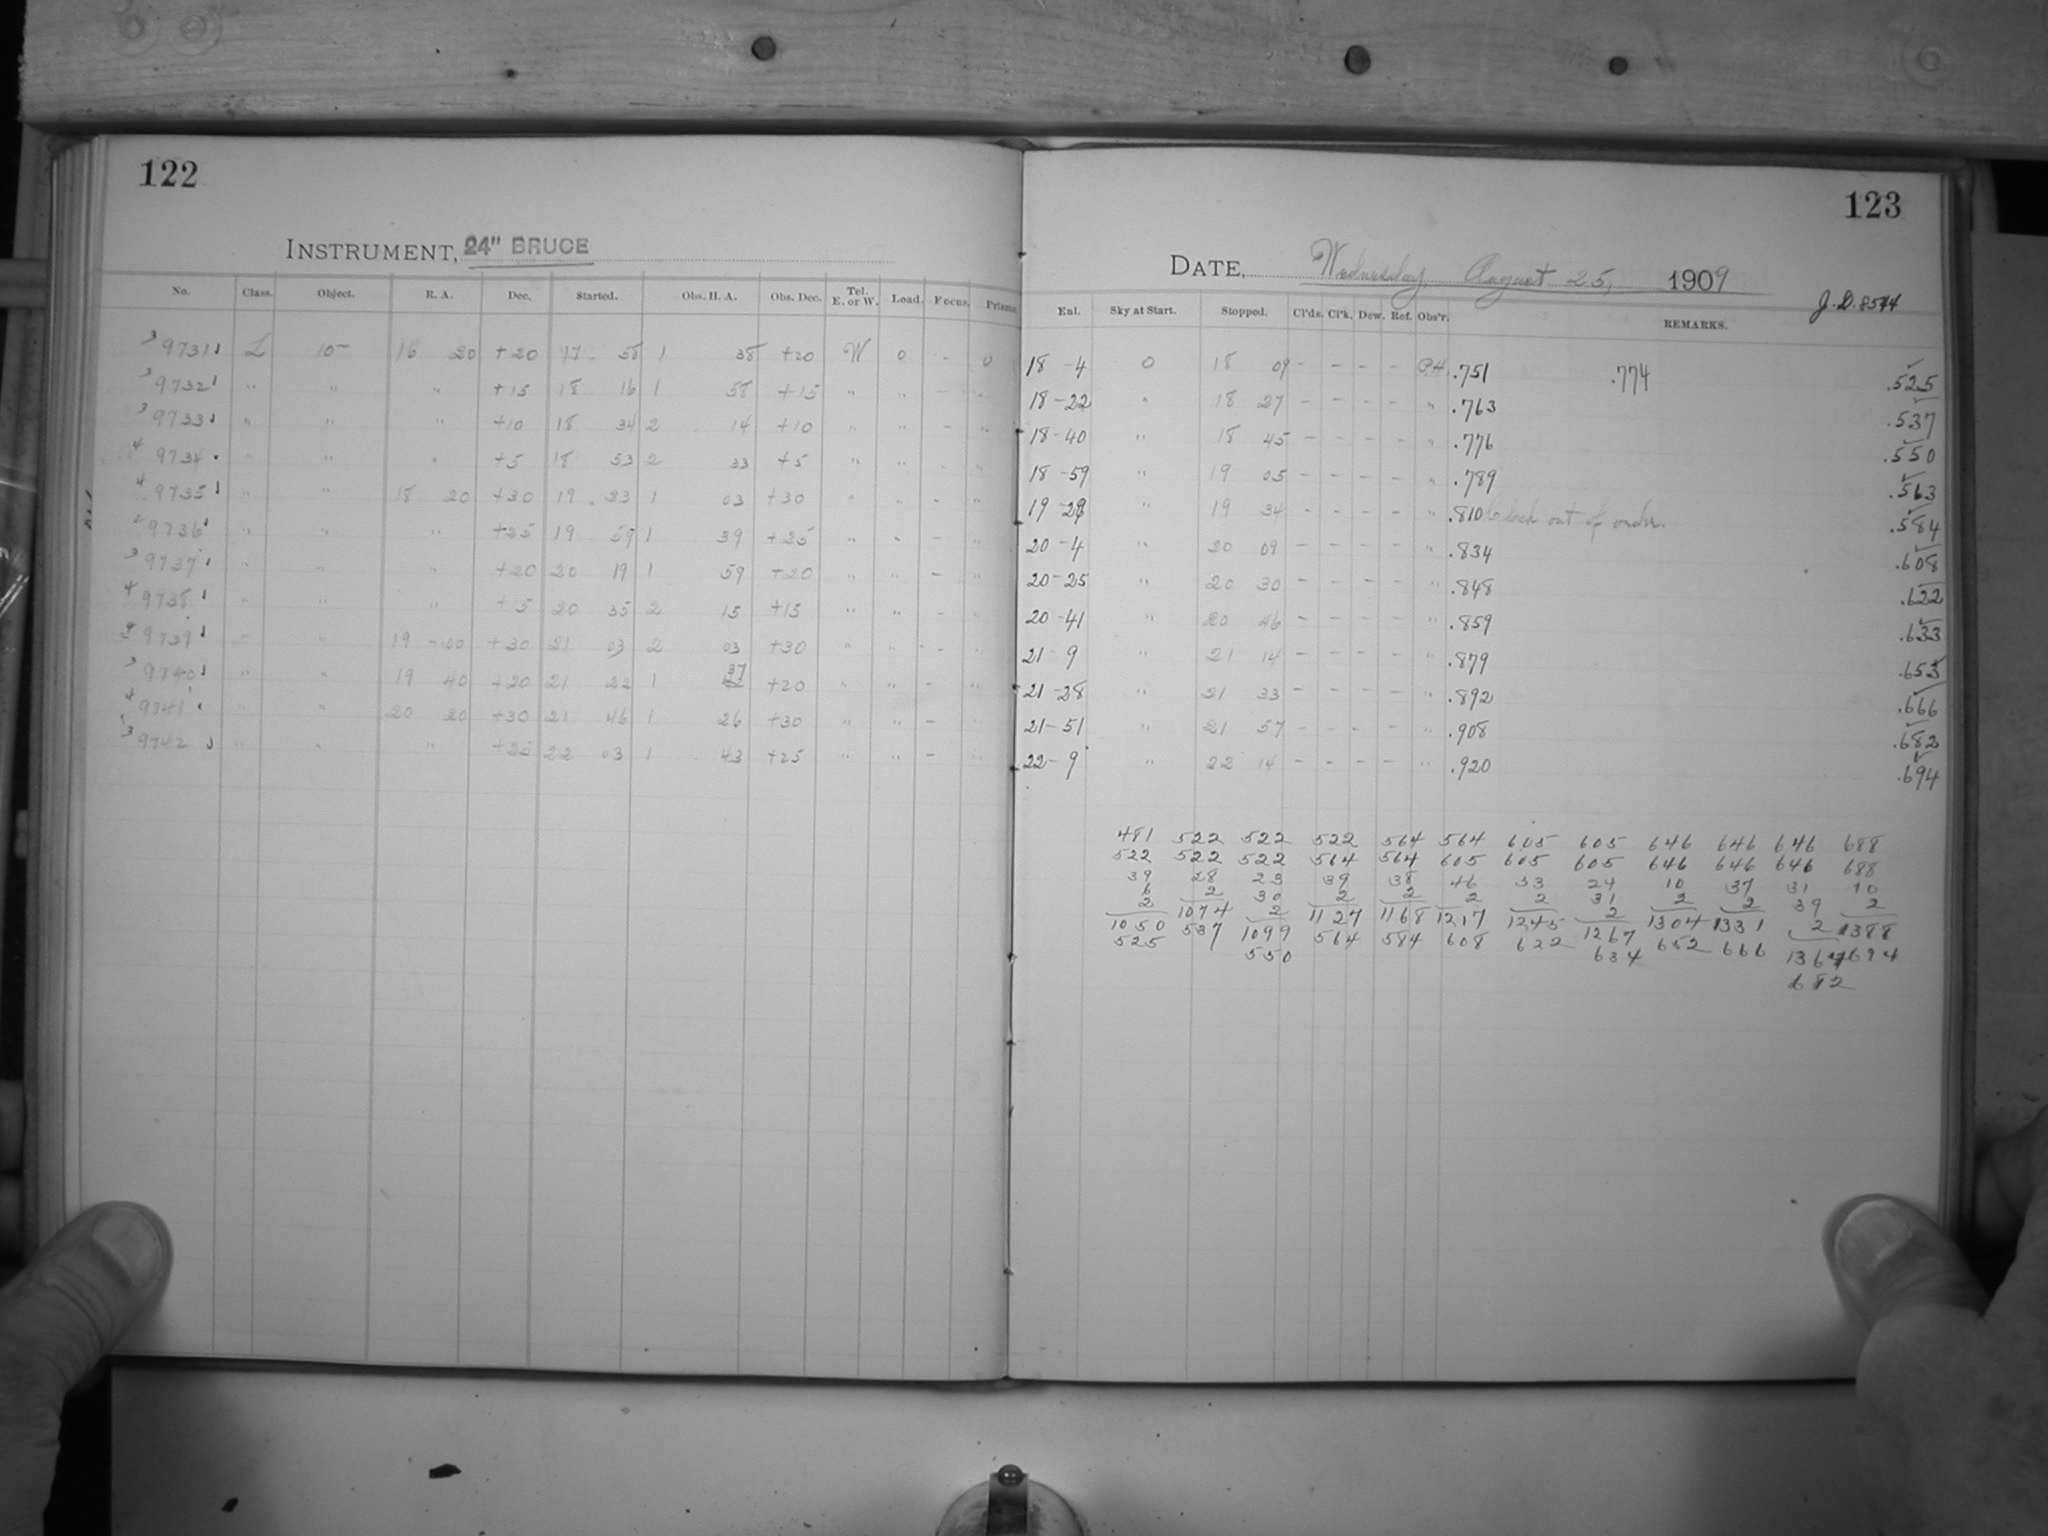 122
INSTRUMENT, 24" BRUCE
No. Class. Object. R. A. Dec. Started. Obs. H. A. Obs. Dec. Tel. E. or W. Load. Focus. Prisms.
3 9731 L 10- 16 20 +20 17 58 1 38 +20 W 0 - 0
3 9732 " " " +15 18 16 1 58 +15 " " - "
3 9733 " " " +10 18 34 2 14 +10 " " - "
4 9734 " " " +5 18 53 2 33 +5 " " - "
4 9735 " " 18 20 +30 19 23 1 03 +30 " " - "
2 9736 " " " +25 19 59 1 39 +25 " " - "
3 9737 " " " +20 20 19 1 59 +20 " " - "
4 9738 " " " +15 20 35 2 15 +15 " " - "
9739 " " 19 00 +30 21 03 2 03 +30 " " - "
3 9740 " " 19 40 +20 21 22 1 37 +20 " " - "
4 9741 " " 20 20 +30 21 46 1 26 +30 " " - "
3 9742 " " " +25 22 03 1 43 +25 " " - "
123
DATE, Wednesday August 25, 1909
J.D. 8544
Enl. Sky at Start. Stopped. Cl'ds. Cl'k. Dew. Ref. Obs'r. REMARKS.
18-4 0 18 09 - - - - .751 .774 .525
18-22 " 18 27 - - - - " .763 .537
18-40 " 18 45 - - - - " .776 .550
18-59 " 19 05 - - - - " .789 .563
19-29 " 19 34 - - - - " .810 Clock out of order. .584
20-4 " 20 09 - - - - " .834 .608
20-25 " 20 30 - - - - " .848 .622
20-41 " 20 46 - - - - " .859 .633
21-9 " 21 14 - - - - " .879 .653
21-28 " 21 33 - - - - " .892 .666
21-51 " 21 57 - - - - " .908 .682
22-9 " 22 14 - - - - " .920 .694
481 522 522 522 564 564 605 605 646 646 646 688
522 522 522 564 564 605 605 605 646 646 646 688
39 28 23 39 38 46 33 24 10 37 31 10
6 2 30 2 2 2 2 31 2 2 39 2
2 1074 2 1127 1168 1217 1245 2 1304 1331 2 1388
1050 537 1099 564 584 608 622 1267 652 666 1364 694
525 550 634 682